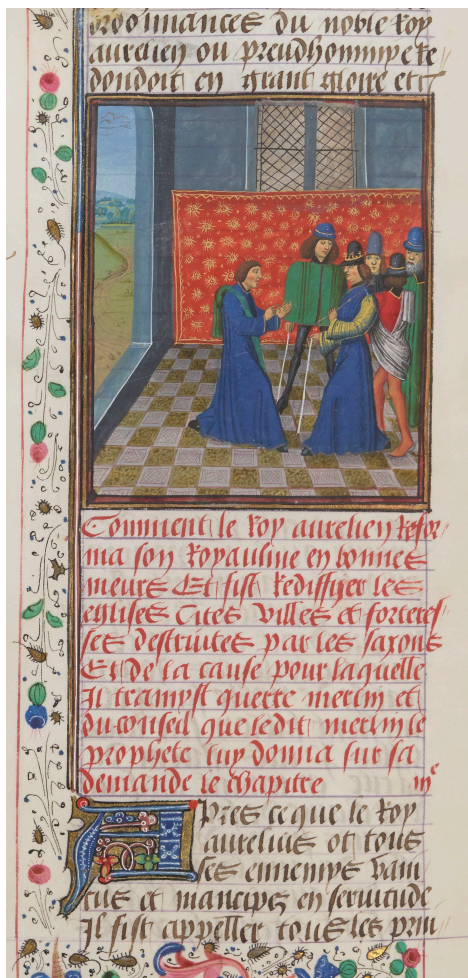 ordonnances du noble Roy
aurelien ou preudhommye Re
dondoit en grant gloire etc
Comment le Roy aurelien Refor
ma son Royaulme en bonnes
meurs Et fist Rediffyer les
eglises Cites villes et forteres
ses destruites par les saxons
Et de la cause pour laquelle
Il tramyst querre merlin et
du conseil que ledit merlin le
prophete luy donna sur sa
demande le chapitre
Apres ce que le Roy
aurelius ot tous
ses ennemys vain
cus et mancipez en seruitude
Il fist appeller tous les prin